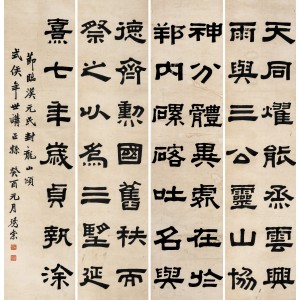 天同燿能烝雲興
雨與三公靈山協
神分體異處在於
邦内磥硌吐名與
德齊勳國舊秩而
祭之以為三望延
熹七年歲貞執涂
節臨漢元氏封龍山頌
侯年世講正 癸酉元月